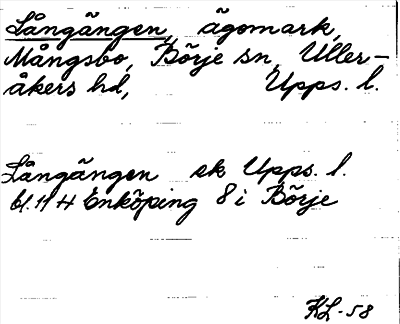 Långängen, ägomark,
Mångsbo, Börje sn, Uller-
åkers hd, Upps. l.
Långängen ek Upps. l.
bl. 11 H Enköping 8 i Börje
KL-58